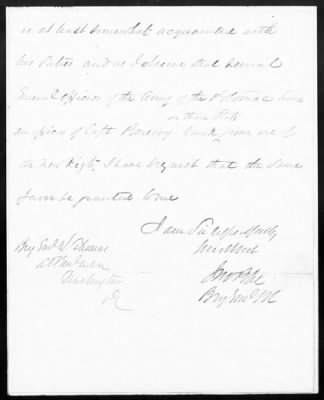 is at least somewhat acquainted with
his duties and as I observe that several
General Officers of the Army of the Potomac have
on their Staffs
an officer of Capt from one of
the new Regts I have to request that the same
favor be granted to me
I am Sir respectfully
Brig Genl L. Thomas
Washington
DC
Brig Genl Vol